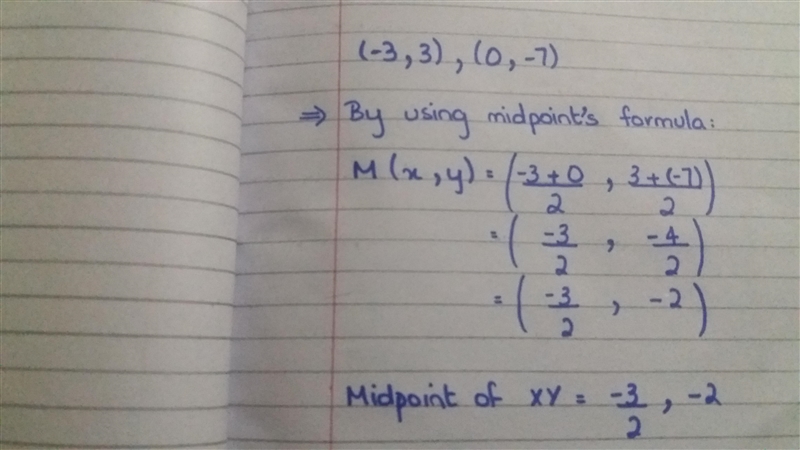 (-3, 3), (0, -7)
⇒ By using midpoint's formula:
M(x, y) = (-3+0/2, 3+(-7)/2)
= (-3/2, -4/2)
= (-3/2, -2)
Midpoint of XY = -3/2, -2